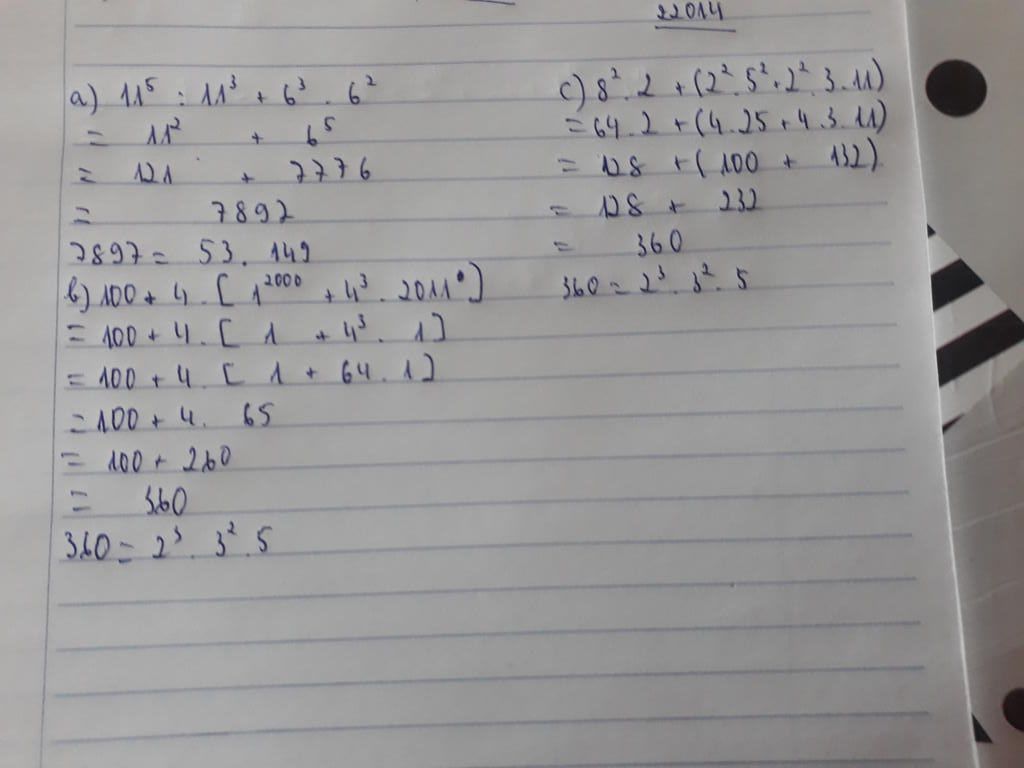 22014
a) 11⁵ : 11³ + 6³ . 6²
= 11² + 6⁵
= 121 + 7776
= 7897
7897 = 53 . 149
b) 100 + 4 . [ 1²⁰⁰⁰ + 4³ . 2011⁰ ]
= 100 + 4 . [ 1 + 4³ . 1 ]
= 100 + 4 . [ 1 + 64 . 1 ]
= 100 + 4 . 65
= 100 + 260
= 360
360 = 2³ . 3² . 5
c) 8² . 2 + (2² . 5² + 2² . 3 . 11)
= 64 . 2 + (4 . 25 + 4 . 3 . 11)
= 128 + (100 + 132)
= 128 + 232
= 360
360 = 2³ . 3² . 5